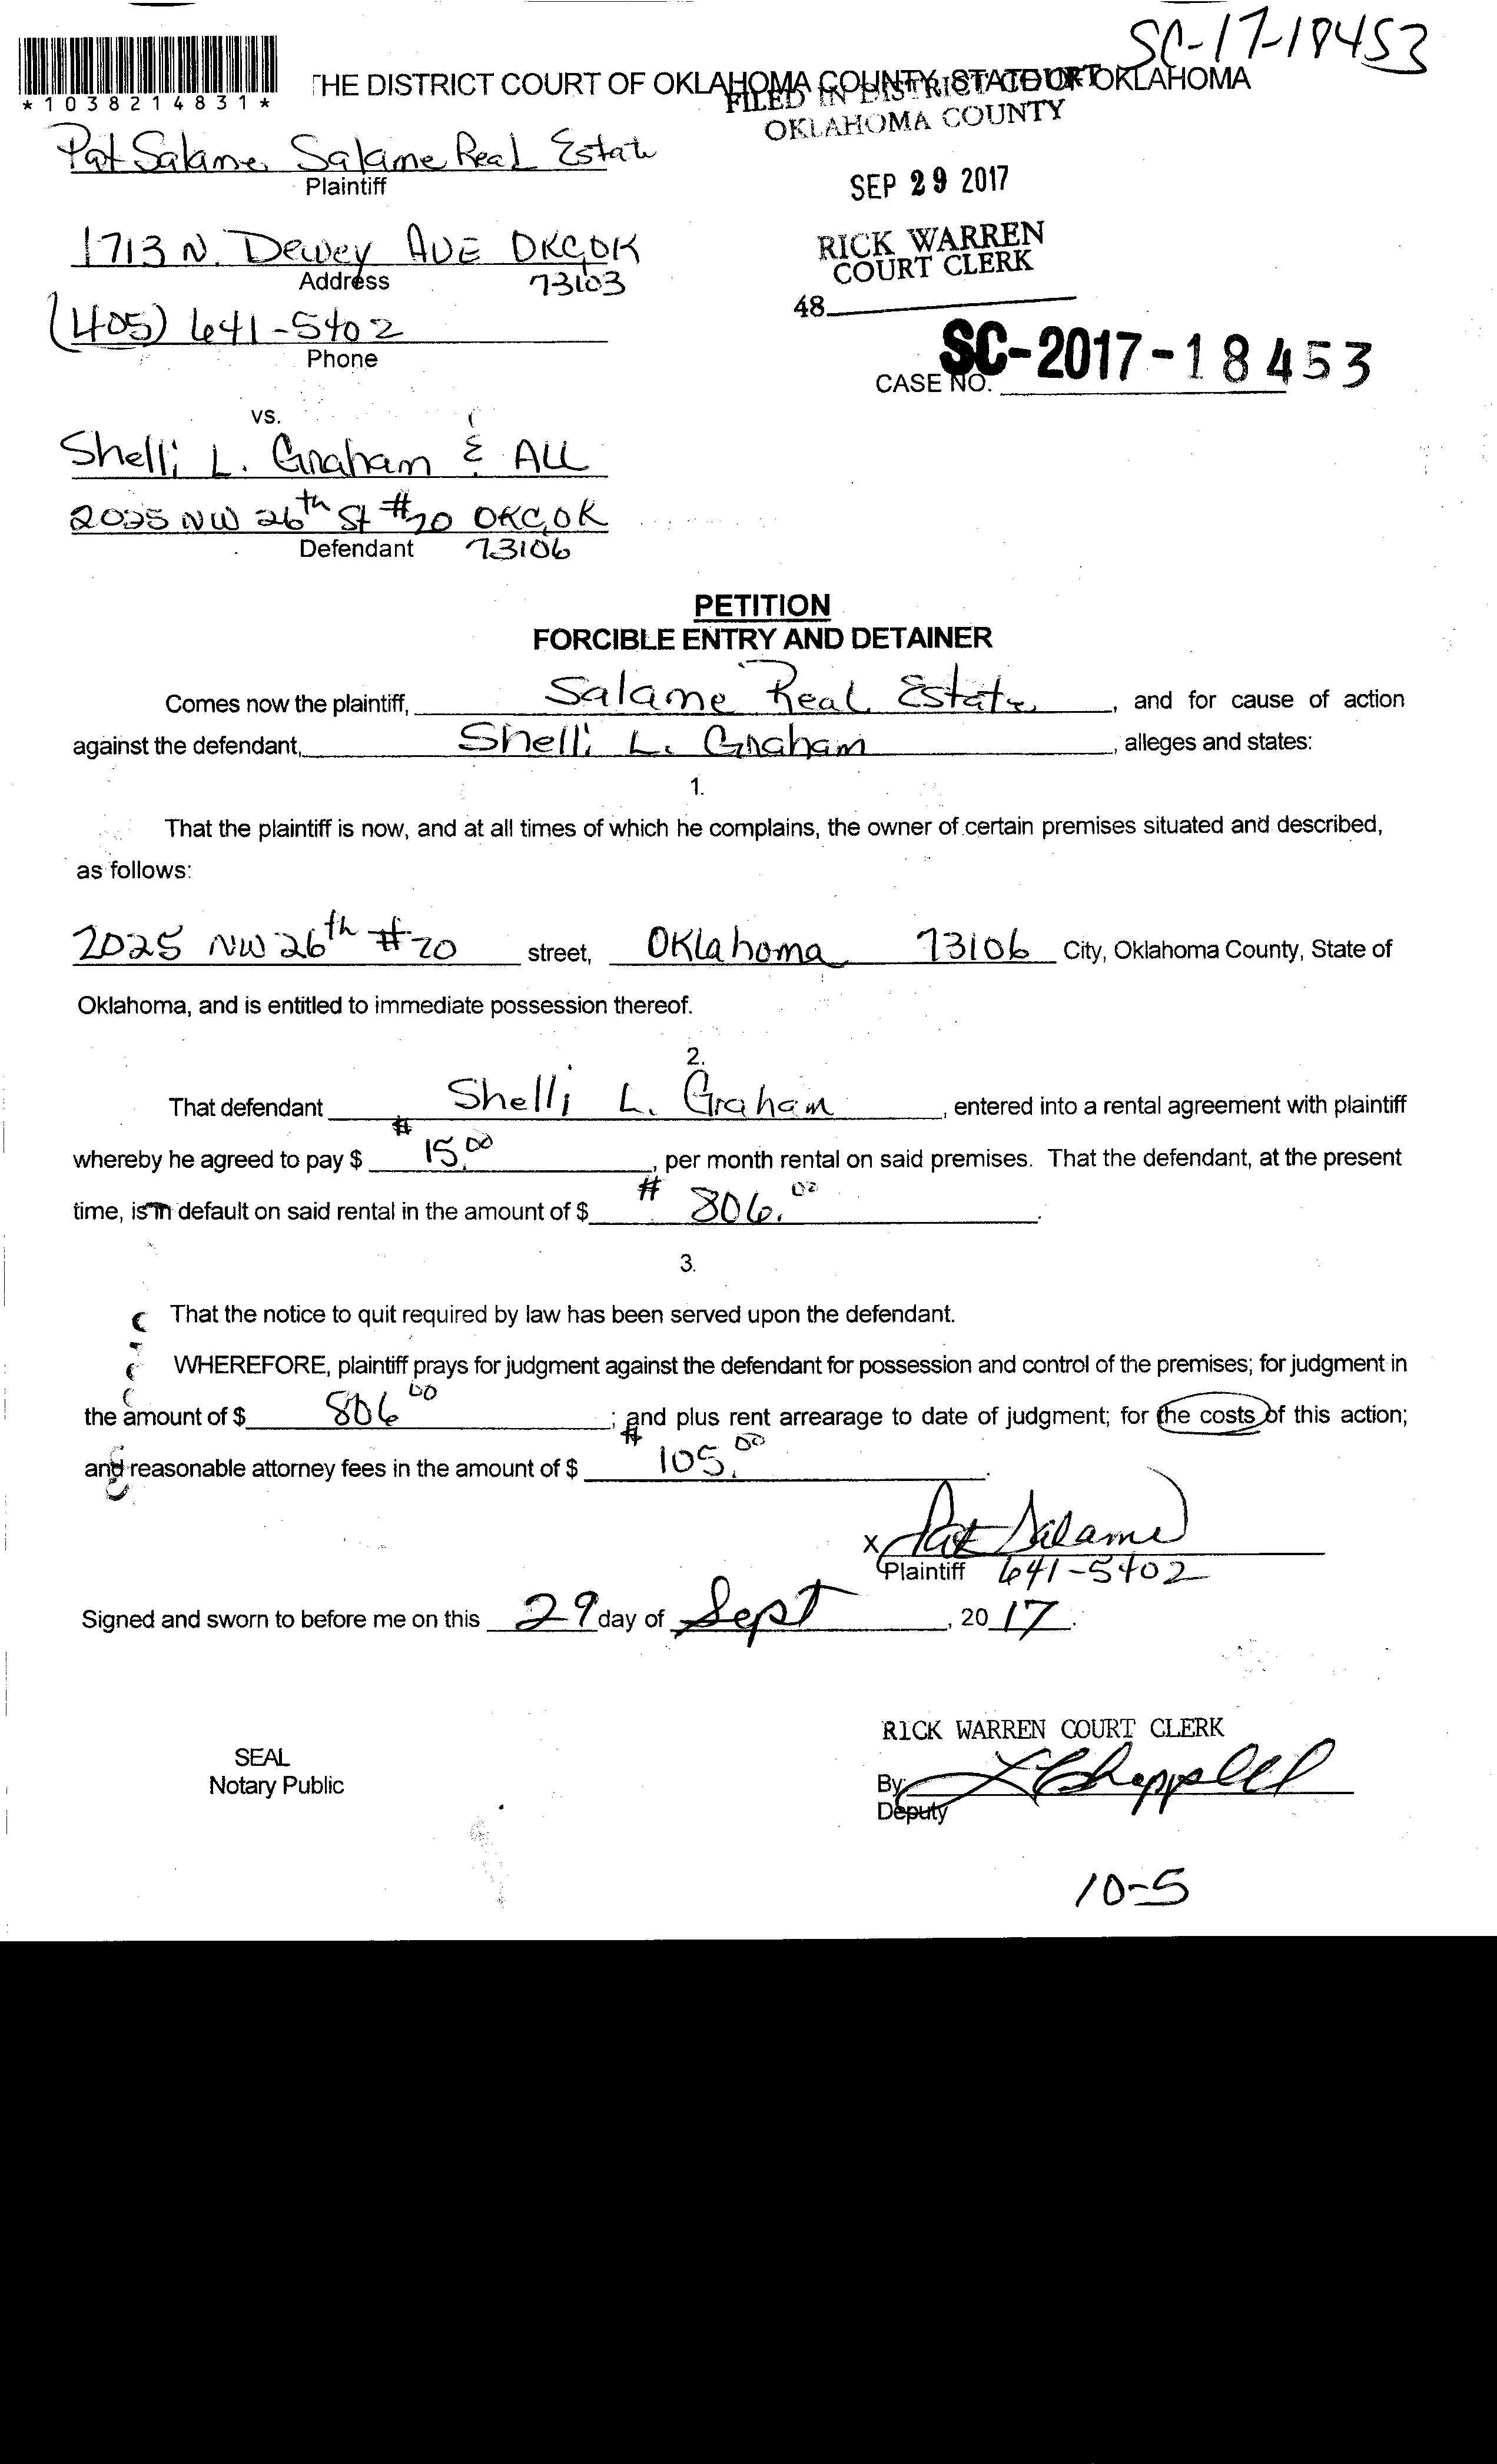 SC-17-18453
*1038214831*
THE DISTRICT COURT OF OKLAHOMA COUNTY, STATE OF OKLAHOMA
FILED IN DISTRICT COURT
OKLAHOMA COUNTY
Pat Salame, Salame Real Estate
Plaintiff
SEP 29 2017
1713 N. Dewey AVE OKC, OK
Address 73103
RICK WARREN
COURT CLERK
48
(405) 641-5402
Phone
SC-2017-18453
CASE NO.
vs.
Shelli L. Graham & ALL
2025 NW 26th St #20 OKC, OK
Defendant 73106
PETITION
FORCIBLE ENTRY AND DETAINER
Comes now the plaintiff, Salame Real Estate, and for cause of action
against the defendant, Shelli L. Graham, alleges and states:
1.
That the plaintiff is now, and at all times of which he complains, the owner of certain premises situated and described,
as follows:
2025 NW 26th #20 street, Oklahoma 73106 City, Oklahoma County, State of
Oklahoma, and is entitled to immediate possession thereof.
2.
That defendant Shelli L. Graham, entered into a rental agreement with plaintiff
whereby he agreed to pay $ # 15.00, per month rental on said premises. That the defendant, at the present
time, is in default on said rental in the amount of $ # 806.00.
3.
That the notice to quit required by law has been served upon the defendant.
WHEREFORE, plaintiff prays for judgment against the defendant for possession and control of the premises; for judgment in
the amount of $ 806 00; and plus rent arrearage to date of judgment; for the costs of this action;
and reasonable attorney fees in the amount of $ # 105.00.
x Pat Salame
Plaintiff 641-5402
Signed and sworn to before me on this 29 day of Sept, 2017.
RICK WARREN COURT CLERK
SEAL
Notary Public
By: Chappell
Deputy
10-5